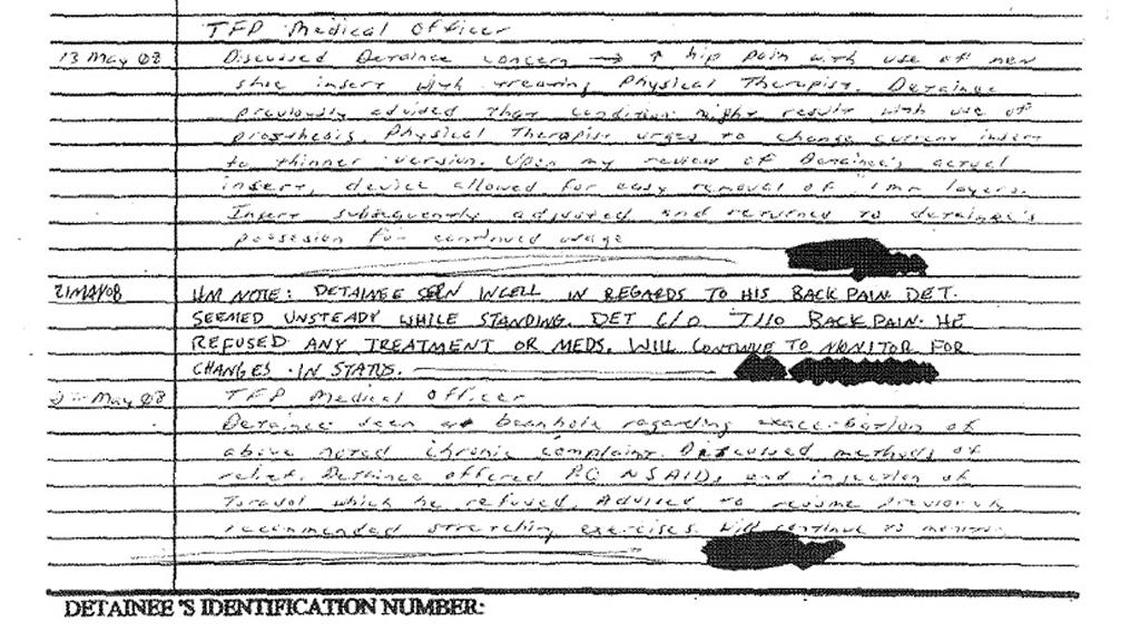 TFP Medical Officer
13 May 08 Discussed Detainee concern → ↑ hip pain with use of new
shoe insert with treating Physical Therapist. Detainee
previously advised that condition might result with use of
prosthesis. Physical Therapist urges to change current insert
to thinner version. Upon my review of Detainee's actual
insert, device allowed for easy removal of 1mm layers.
Insert subsequently adjusted and returned to detainee's
possesion for continued usage
21MAY08 HM NOTE: DETAINEE SEEN INCELL IN REGARDS TO HIS BACK PAIN. DET.
SEEMED UNSTEADY WHILE STANDING. DET C/O 7/10 BACK PAIN. HE
REFUSED ANY TREATMENT OR MEDS. WILL CONTINUE TO MONITOR FOR
CHANGES IN STATUS.
May 08 TFP Medical Officer
Detainee seen at beanhole regarding exacerbation of
above noted chronic complaint. Discussed methods of
relief. Detainee offered PO NSAIDs and injection of
Toradol which he refused. Advised to resume previously
recommended stretching exercises. Will continue to monitor.
DETAINEE'S IDENTIFICATION NUMBER: